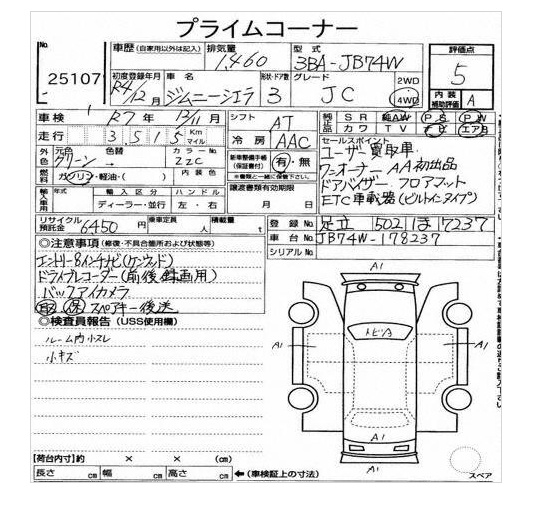 プライムコーナー
No.
25107
車歴 (自家用以外は記入)
排気量
1,460
型式
3BA-JB74W
評価点
5
初度登録年月
R4/12月
車名
ジムニーシエラ
形状・ドア数
3
グレード
JC
2WD
4WD
内装補助評価
A
車検
R7年12/11月
シフト
AT
SR 純AW PS PW
カワ TV ナビ エアB
走行
3515
Km
マイル
冷房
AAC
セールスポイント
ユーザー買取車
ワンオーナー AA初出品
ドアバイザー フロアマット
ETC車載器(ビルトインタイプ)
外色
元色
グリーン→
色替
カラーNo.
ZZC
新車整備手帳
(保証書付)
有・無
※書類と一緒に保管下さい。
燃料
ガソリン・軽油・( )
内装色
輸入車用
年式
輸入区分
ハンドル
ディーラー・並行
左・右
譲渡書類有効期限
月 日
リサイクル預託金
6450円
乗車定員
人
積載量
t
登録No.
足立 502 ほ 7237
車台No.
JB74W-178237
シリアルNo.
◎注意事項(修復・不具合箇所および状態等)
エントリー8インチナビ(ケンウッド)
ドライブレコーダー(前後録画用)
バックアイカメラ
取 保 スペアキー後送
◎検査員報告(USS使用欄)
ルーム内小スレ
小キズ
A1
トビA
A1
A1
A1
A1
スペア
【荷台内寸】約 × × (cm)
長さ cm 幅 cm 高さ cm ←(車検証上の寸法)